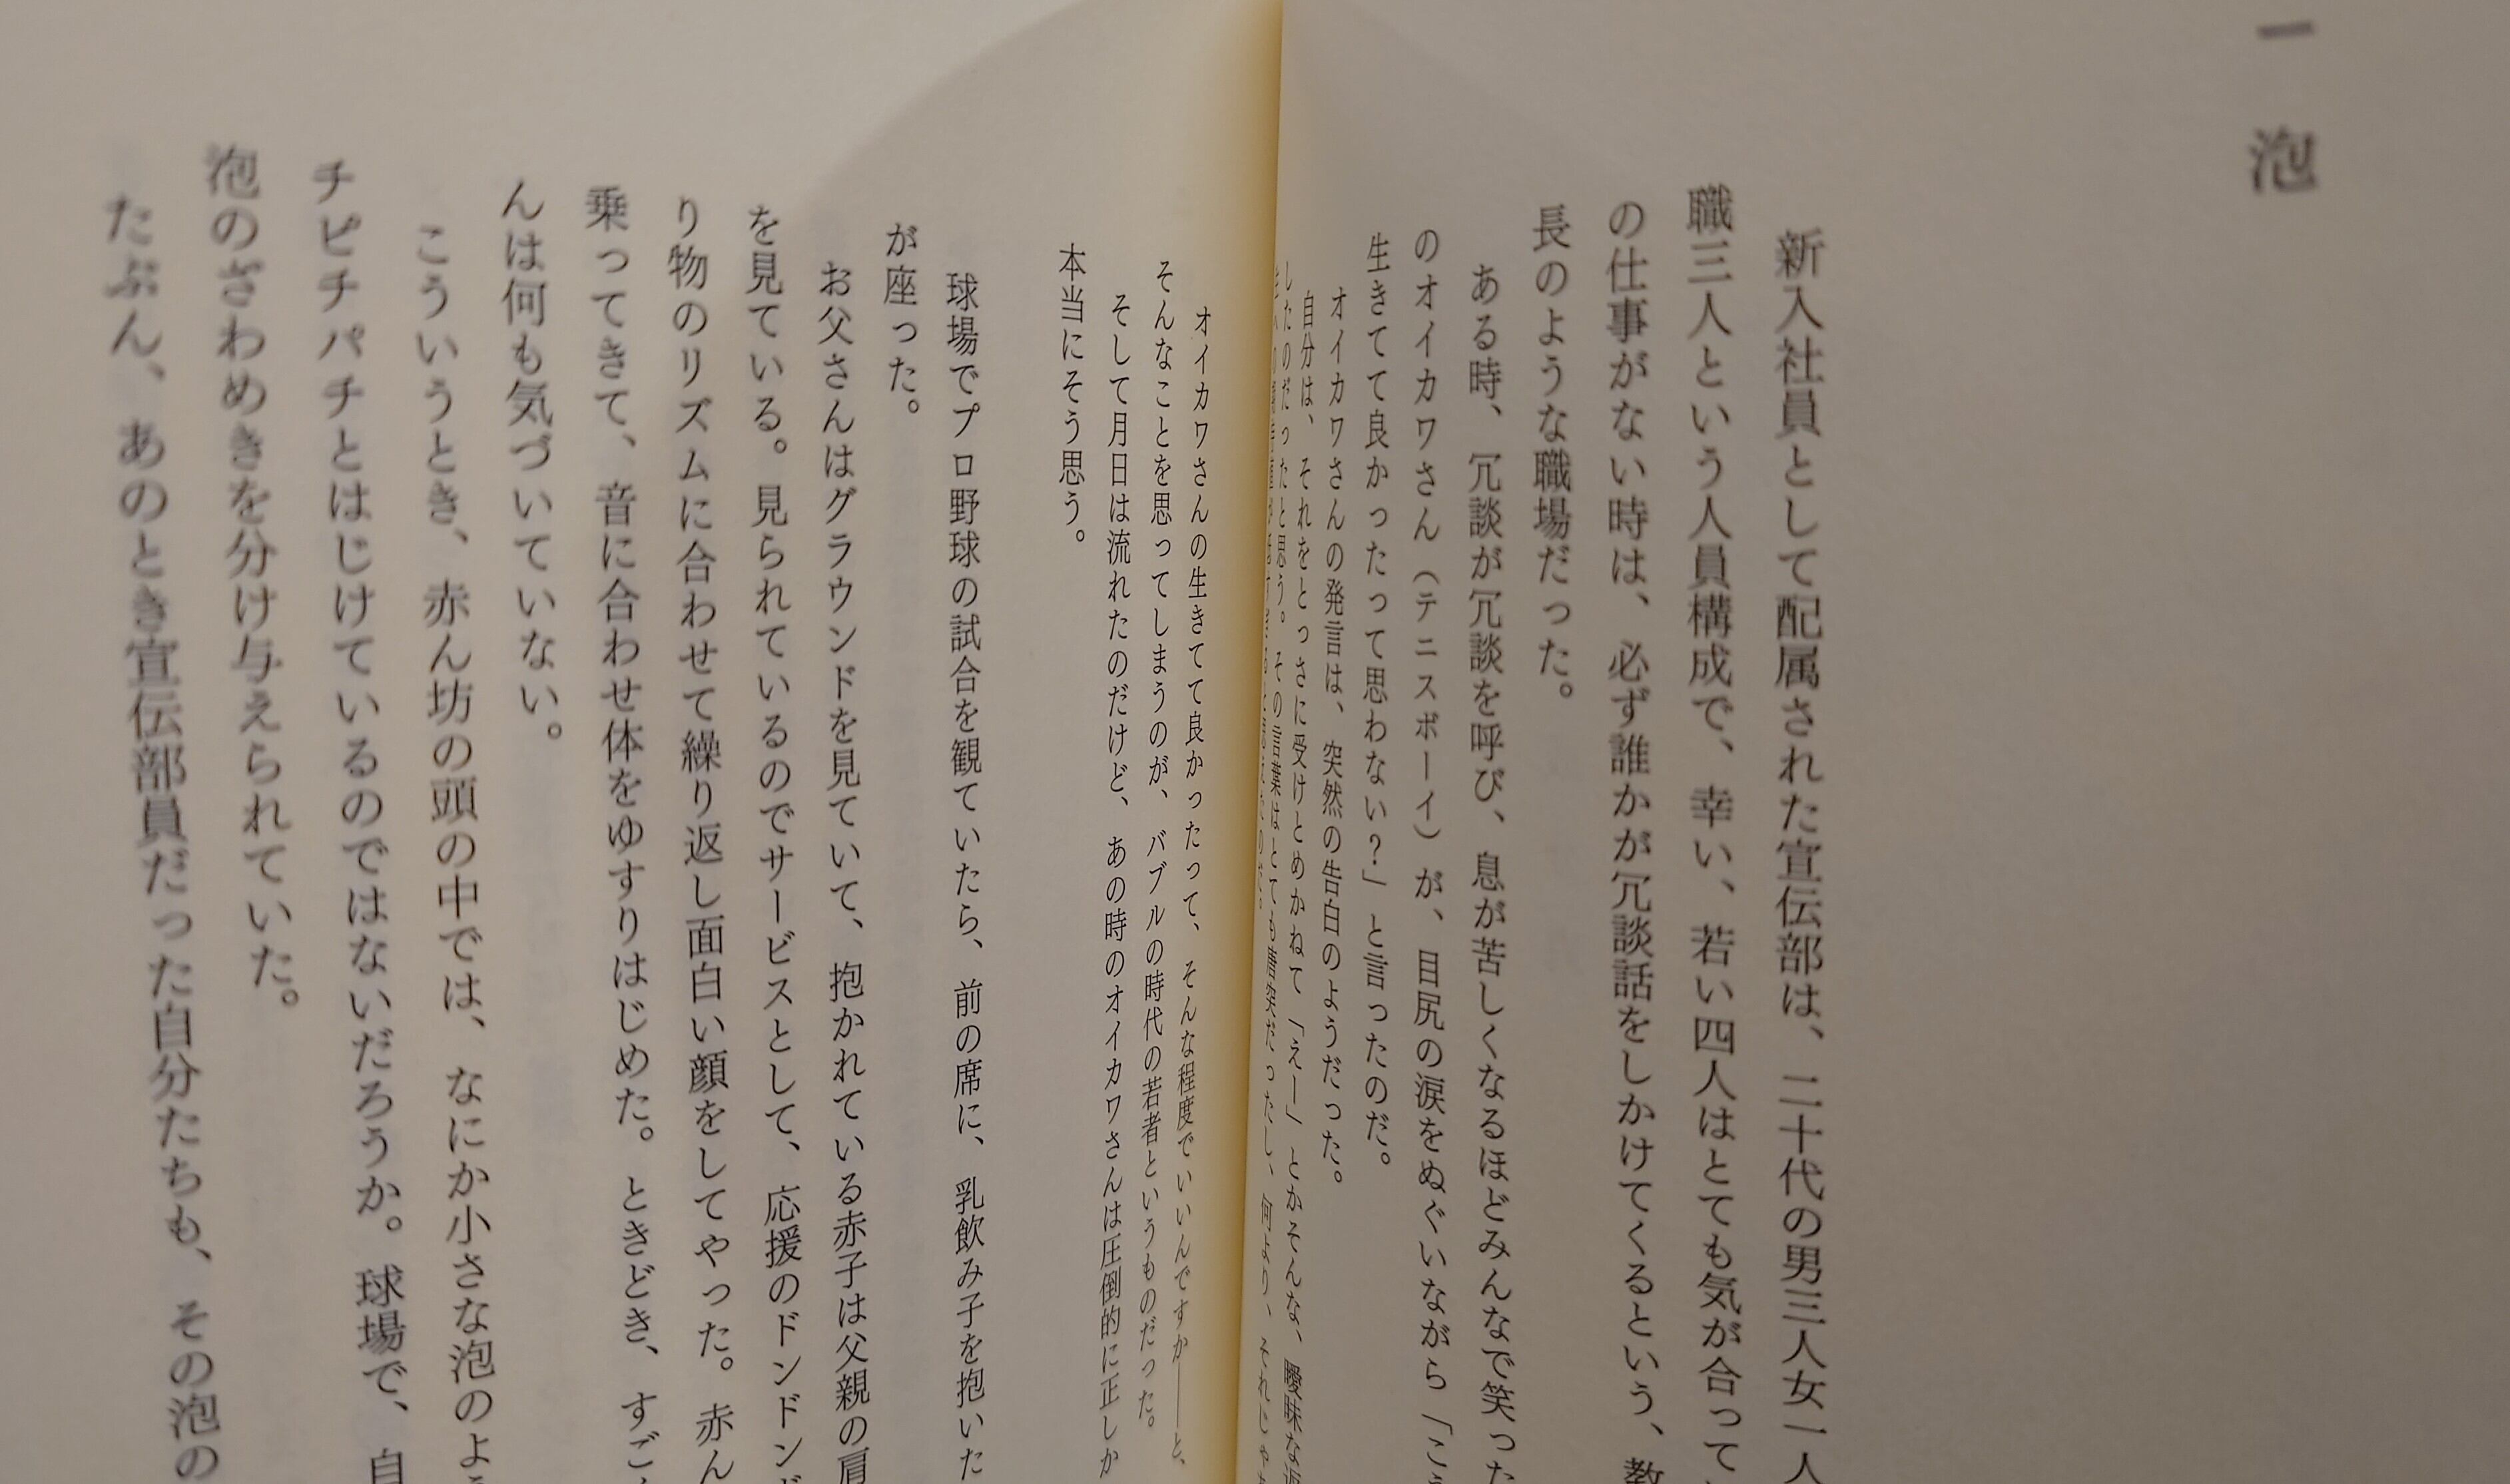 一 泡
新入社員として配属された宣伝部は、二十代の男三人女一人
職三人という人員構成で、幸い、若い四人はとても気が合って
の仕事がない時は、必ず誰かが冗談話をしかけてくるという、教
長のような職場だった。
ある時、冗談が冗談を呼び、息が苦しくなるほどみんなで笑った
のオイカワさん（テニスボーイ）が、目尻の涙をぬぐいながら「こ
生きてて良かったって思わない？」と言ったのだ。
オイカワさんの発言は、突然の告白のようだった。
自分は、それをとっさに受けとめかねて「えー」とかそんな、曖昧な返
したのだったと思う。その言葉はとても唐突だったし、何より、それじゃ
オイカワさんの生きてて良かったって、そんな程度でいいんですか――と、
そんなことを思ってしまうのが、バブルの時代の若者というものだった。
そして月日は流れたのだけど、あの時のオイカワさんは圧倒的に正しか
本当にそう思う。
球場でプロ野球の試合を観ていたら、前の席に、乳飲み子を抱いた
が座った。
お父さんはグラウンドを見ていて、抱かれている赤子は父親の肩
を見ている。見られているのでサービスとして、応援のドンドンド
り物のリズムに合わせて繰り返し面白い顔をしてやった。赤ん
乗ってきて、音に合わせ体をゆすりはじめた。ときどき、すご
んは何も気づいていない。
こういうとき、赤ん坊の頭の中では、なにか小さな泡のよう
チピチパチとはじけているのではないだろうか。球場で、自
泡のざわめきを分け与えられていた。
たぶん、あのとき宣伝部員だった自分たちも、その泡の